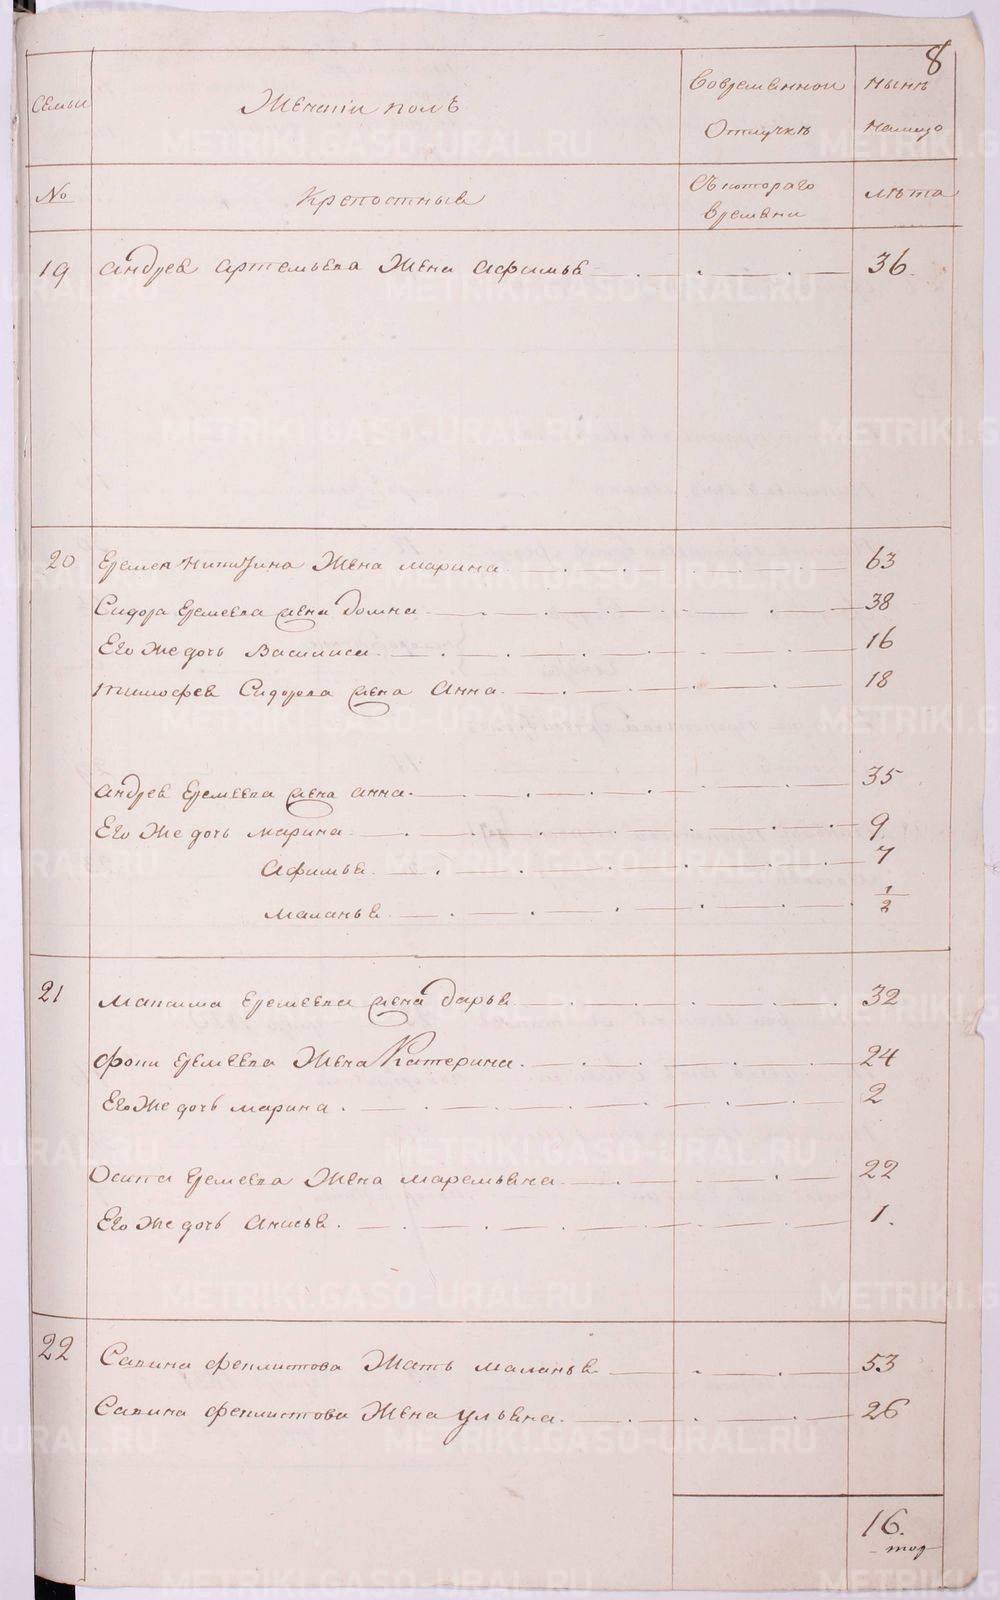 8
Семьи Женский полъ Во временной Нынѣ
Отлучкѣ Налицо
№ Крепостныя Съ котораго лѣта
Времени
19 Андрея Артемьева Жена Афимья 36.
20 Еремея Никитина Жена Марина 63
Сидора Еремеева жена Домна 38
Его же дочь Василиса 16
Тимофея Сидорова жена Анна 18
Андрея Еремеева жена Анна 35
Его же дочь Марина 9
Афимья 7
Маланья 1/2
21 Максима Еремеева жена Дарья 32
Фоки Еремеева Жена Катерина 24
Его же дочь Марина 2
Осипа Еремеева Жена Маремьяна 22
Его же дочь Анисья 1.
22 Савина Феклистова Мать Маланья 53
Савина Феклистова Жена Ульяна 26
16.
METRIKI.GASO-URAL.RU